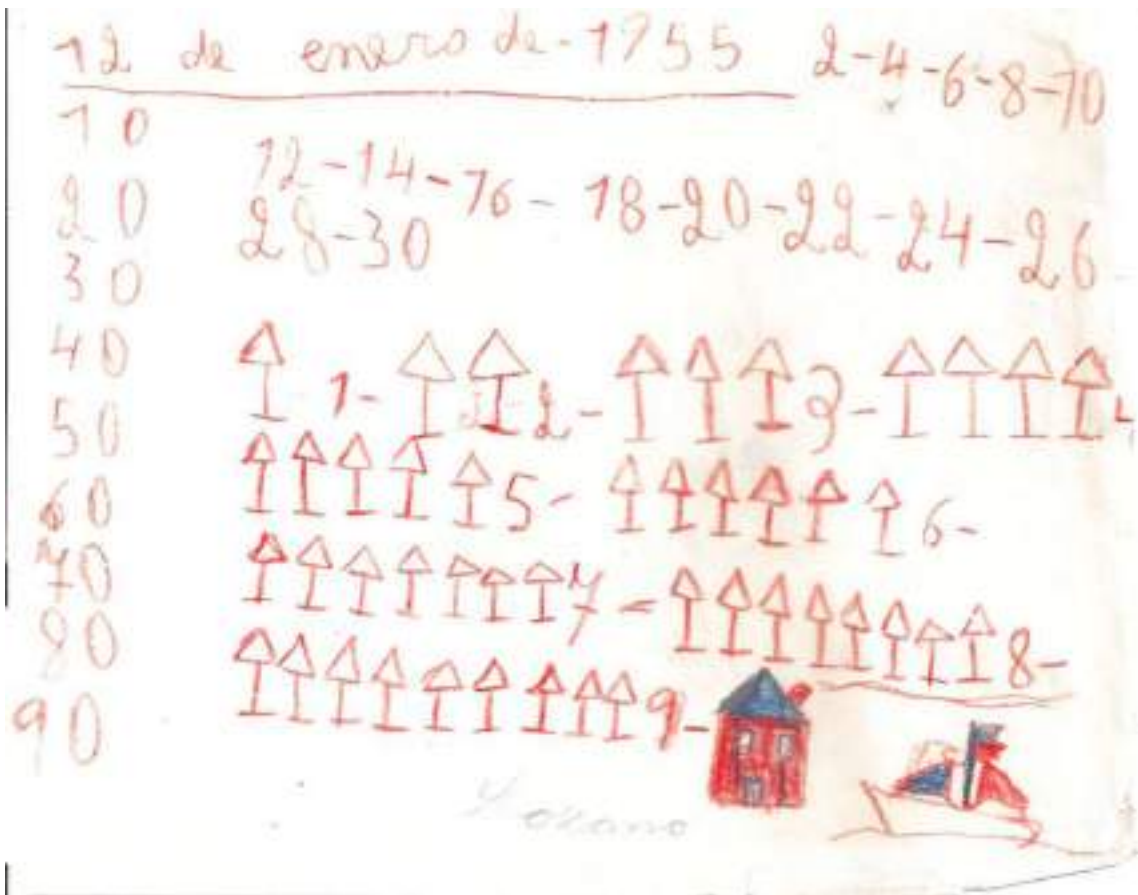 12 de enero de-1755
2-4-6-8-10
10
20
30
40
50
60
70
80
90
12-14-16-18-20-22-24-26
28-30
1- 2- 3- 4
5- 6-
7- 8-
9-